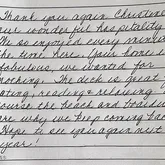 Thank you again Christine
our wonderful hospitality
We so enjoyed every minute
the time here. Your home is
fabulous, we wanted for
nothing. The deck is great for
ating, reading & relaxing
course the beach and
are why we keep coming back
Hope to see you again next
year!